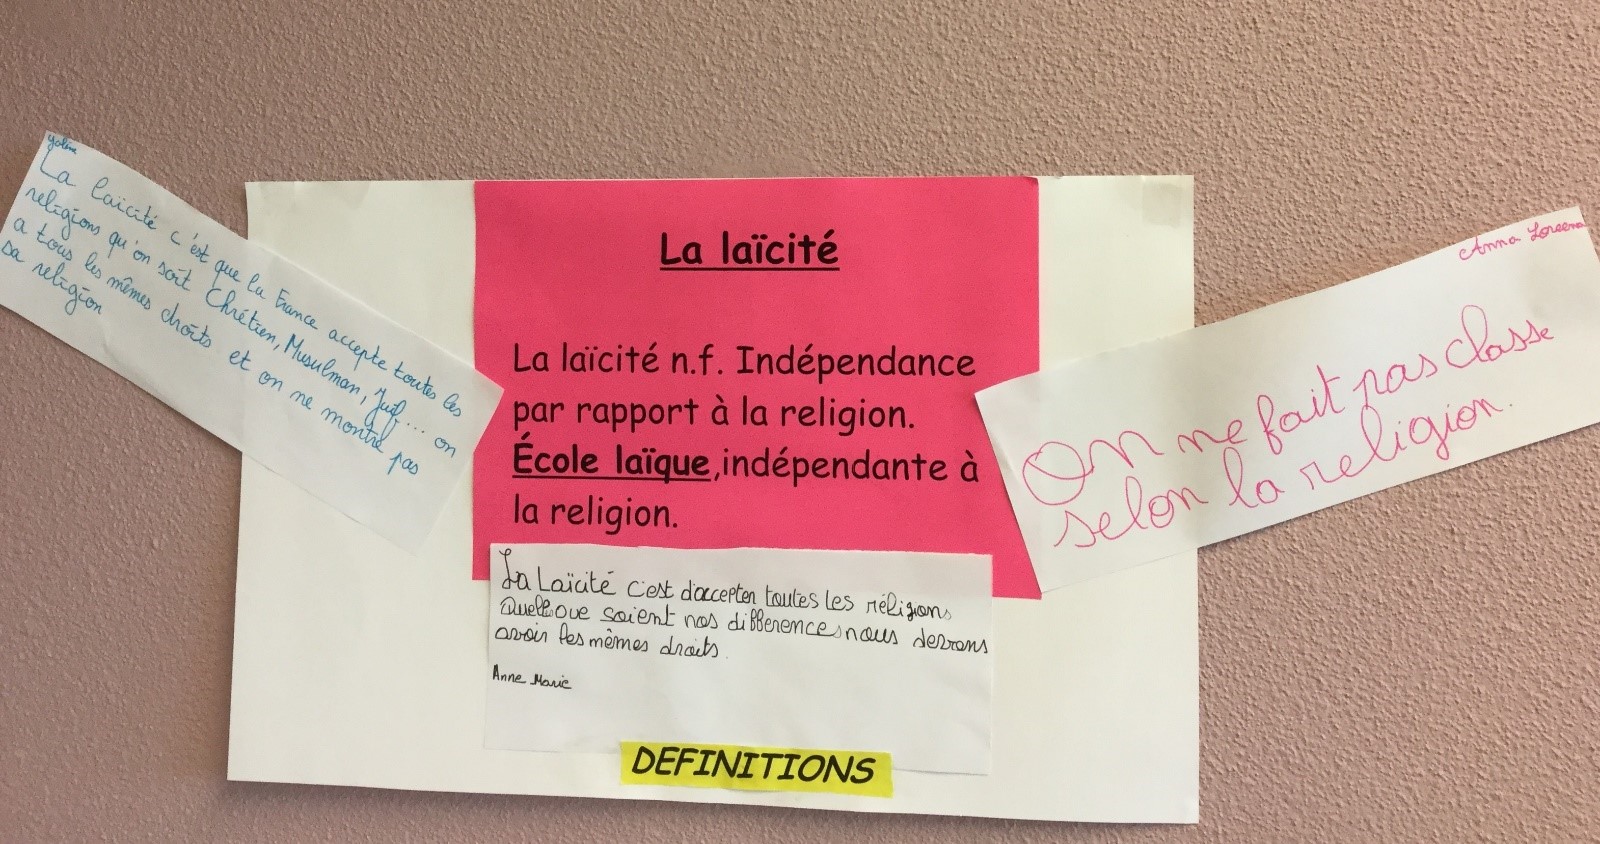 La laïcité c'est que la France accepte toutes les
religions qu'on soit Chrétien, Musulman, Juif... on
a tous les mêmes droits et on ne montre pas
sa religion
La laïcité
La laïcité n.f. Indépendance
par rapport à la religion.
École laïque,indépendante à
la religion.
La Laïcité c'est d'accepter toutes les réligions
Quelleque soient nos differences nous devrons
avoir les mêmes droits.
Anne Marie
DEFINITIONS
Anna Loreena
On ne fait pas classe
selon la religion.